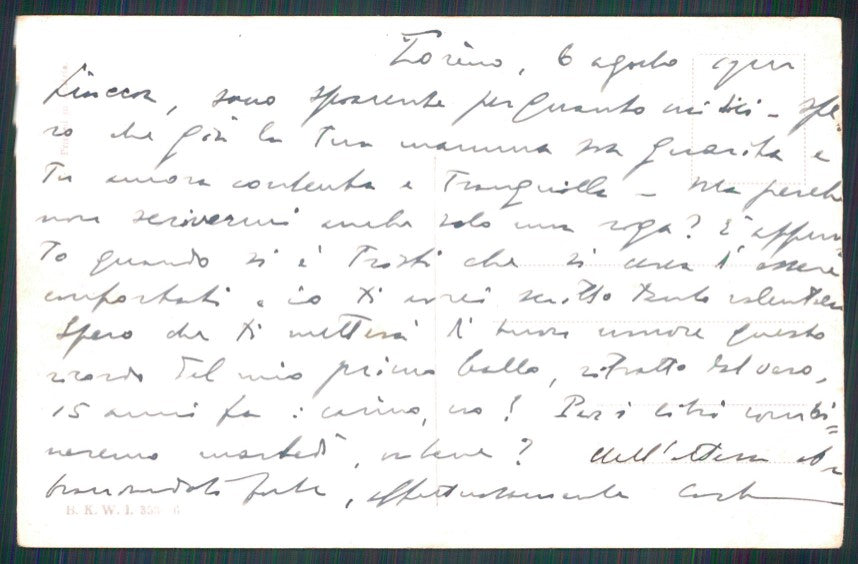 Torino, 6 agosto
sono spiacente per quanto mi dici - spe-
ro che già la Tua mamma sia guarita e
Tu ancora contenta e Tranquilla - Ma perchè
non scrivermi anche solo una riga? È appun-
To quando si è Tristi che si cerca d'essere
confortati e io Ti avrei scritto tanto volentieri
Spero che Ti metterà di buon umore questo
ricordo del mio primo ballo, ritratto dal vero,
15 anni fa: carino, no! Per i libri combi=
neremo martedì, va bene? Nell'attesa ab-
bracciandoti forte, affettuosamente
B. K. W. I.